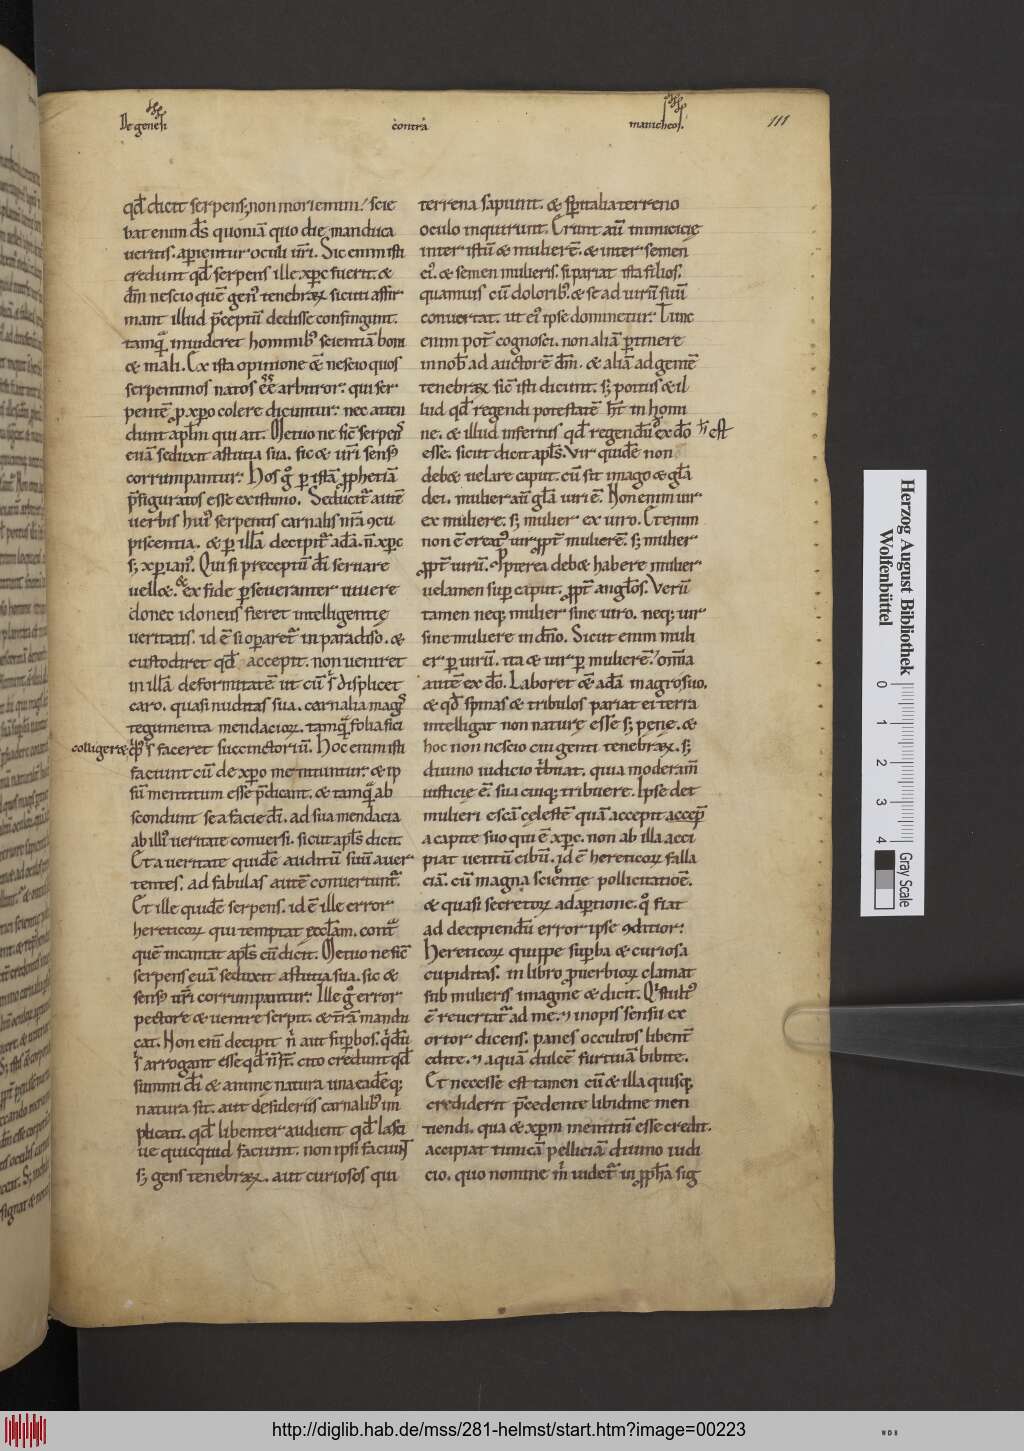 De genesi
contra
manicheos.
111
qđ dicit serpens, non moriemini. scie
bat enim dṡ quoniā quo die manduca
ueritis. aperientur oculi ur̄i. Sic enim isti
credunt qđ serpens ille xp̄c fuerit. &
dm̄ nescio quē gen' tenebrarꝝ sicuti affir
mant illud p̄ceptū dedisse confingunt.
tamquā inuideret hominib' scientiā boni
& mali. Ex ista opinione &ē nescio quos
serpentinos natos eēē arbitror. qui ser
pentē ꝓ xp̄o colere dicuntur. nec atten
dunt apl̄m qui ait. Metuo ne sic̄ serpens
euā seduxit astutia sua. sic & ur̄i sensus
corrumpantur. Hos g° ꝑ istā ꝓphetiā
p̄figuratos esse existimo. Seducit̄ autē
uerbis hui' serpentis carnalis nr̄a ꝯcu
piscentia. & ꝑ illā decipit̄ adā. n̄ xp̄c
s; xp̄ian'. Qui si preceptū dī seruare
uell&. & ex fide ꝑseueranter uiuere
donec idoneus fieret intelligentię
ueritatis. id ē si oꝑaret̄ in paradiso. &
custodiret qđ accepit. non ueniret
in illā deformitatē ut cū s' displicet
caro. quasi nuditas sua. carnalia magis
tegumenta mendaciorꝝ. tamquā folia fici
colligeret
qb; s' faceret succinctoriū. Hoc enim isti
faciunt cū de xp̄o mentiuntur. & ip
sū mentitum esse p̄dicant. & tamquā ab
scondunt se a facie dī. ad sua mendacia
ab illi' ueritate conuersi. sicut apl̄s dicit.
Et a ueritate quidē auditū suū auer
tentes. ad fabulas autē conuertunt̄.
Et ille quidē serpens. id ē ille error
hereticorꝝ qui temptat ęccl̄am. contra
quē incantat apl̄s cū dicit. Metuo ne sic̄
serpens euā seduxit astutia sua. sic &
sensus ur̄i corrumpantur. Ille g° error
pectore & uentre serpit. & t̄rā mandu
cat. Non enī decipit n̄ aut suꝑbos. qđū
s' arrogant esse qđ n̄ s̄t. cito credunt qđ
summi dī & anime natura una eadēq;
natura sit. aut desideriis carnalib' im
plicati. qđ libenter audient qđ lasci
ue quicquid faciunt. non ipsi faciunt
s; gens tenebrarꝝ. aut curiosos qui
terrena sapiunt. & sp̄italia terreno
oculo inquirunt. Erunt aū inimicitię
inter istū & mulierē. & inter semen
ei'. & semen mulieris. si pariat ista filios.
quamuis cū dolorib'. & se ad uirū suū
conuertat. ut ei' ipse dominetur. Tunc
enim pot̄ cognosci. non aliā ꝑtinere
in nob̄ ad auctorē dm̄. & aliā ad gentē
tenebrarꝝ sic̄ isti dicunt. s; potius & il
lud qđ regendi potestatē h̄t in homi
ne. & illud inferius qđ regendū ex dō
est
esse. sicut dicit apl̄s. Vir quidē non
deb& uelare caput. cū sit imago & gl̄a
dei. mulier aū gl̄a uiri ē. Non enim uir
ex muliere. s; mulier ex uiro. Etenim
non ē creat' uir ꝓpt̄ mulierē. s; mulier
ꝓpt̄ uirū. Ꝓpterea deb& habere mulier
uelamen suꝑ caput. ꝓpt̄ angl̄os. Verū
tamen neq; mulier sine uiro. neq; uir
sine muliere in dn̄o. Sicut enim muli
er ꝑ uirū. ita & uir ꝑ mulierē. om̄ia
autē ex dō. Laboret &ē adā in agro suo.
& qđ spinas & tribulos pariat ei terra
intelligat non naturę esse s; pene. &
hoc non nescio cui genti tenebrarꝝ. s;
diuino iudicio t̄buat. quia moderam̄
iusticię ē. sua cuiq; tribuere. Ipse det
mulieri escā cęlestē quā accepit accep̄
a capite suo qui ē xp̄c. non ab illa acci
piat uetitū cibū. id ē hereticorꝝ falla
ciā. cū magna scientię pollicitatiōē.
& quasi secretorꝝ adaꝑtione. q° fiat
ad decipiendū error ipse ꝯditior.
Hereticorꝝ quippe suꝑba & curiosa
cupiditas. in libro ꝓuerbiorꝝ clamat
sub mulieris imagine & dicit. Qi stult'
ē reuertat̄ ad me. ⁊ inopis sensu ex
ortor dicens. panes occultos libent̄
edite. ⁊ aquā dulcē furtiuā bibite.
Et necesse est tamen cū & illa quisq;
crediderit p̄cedente libidine men
tiendi. qua & xp̄m mentitū esse credit.
accipiat tunicā pelliciā diuino iudi
cio. quo nomine m̄ uidet̄ in ꝓph̄a sig
Herzog August Bibliothek
Wolfenbüttel
0 1 2 3 4
Gray Scale
http://diglib.hab.de/mss/281-helmst/start.htm?image=00223
WDB